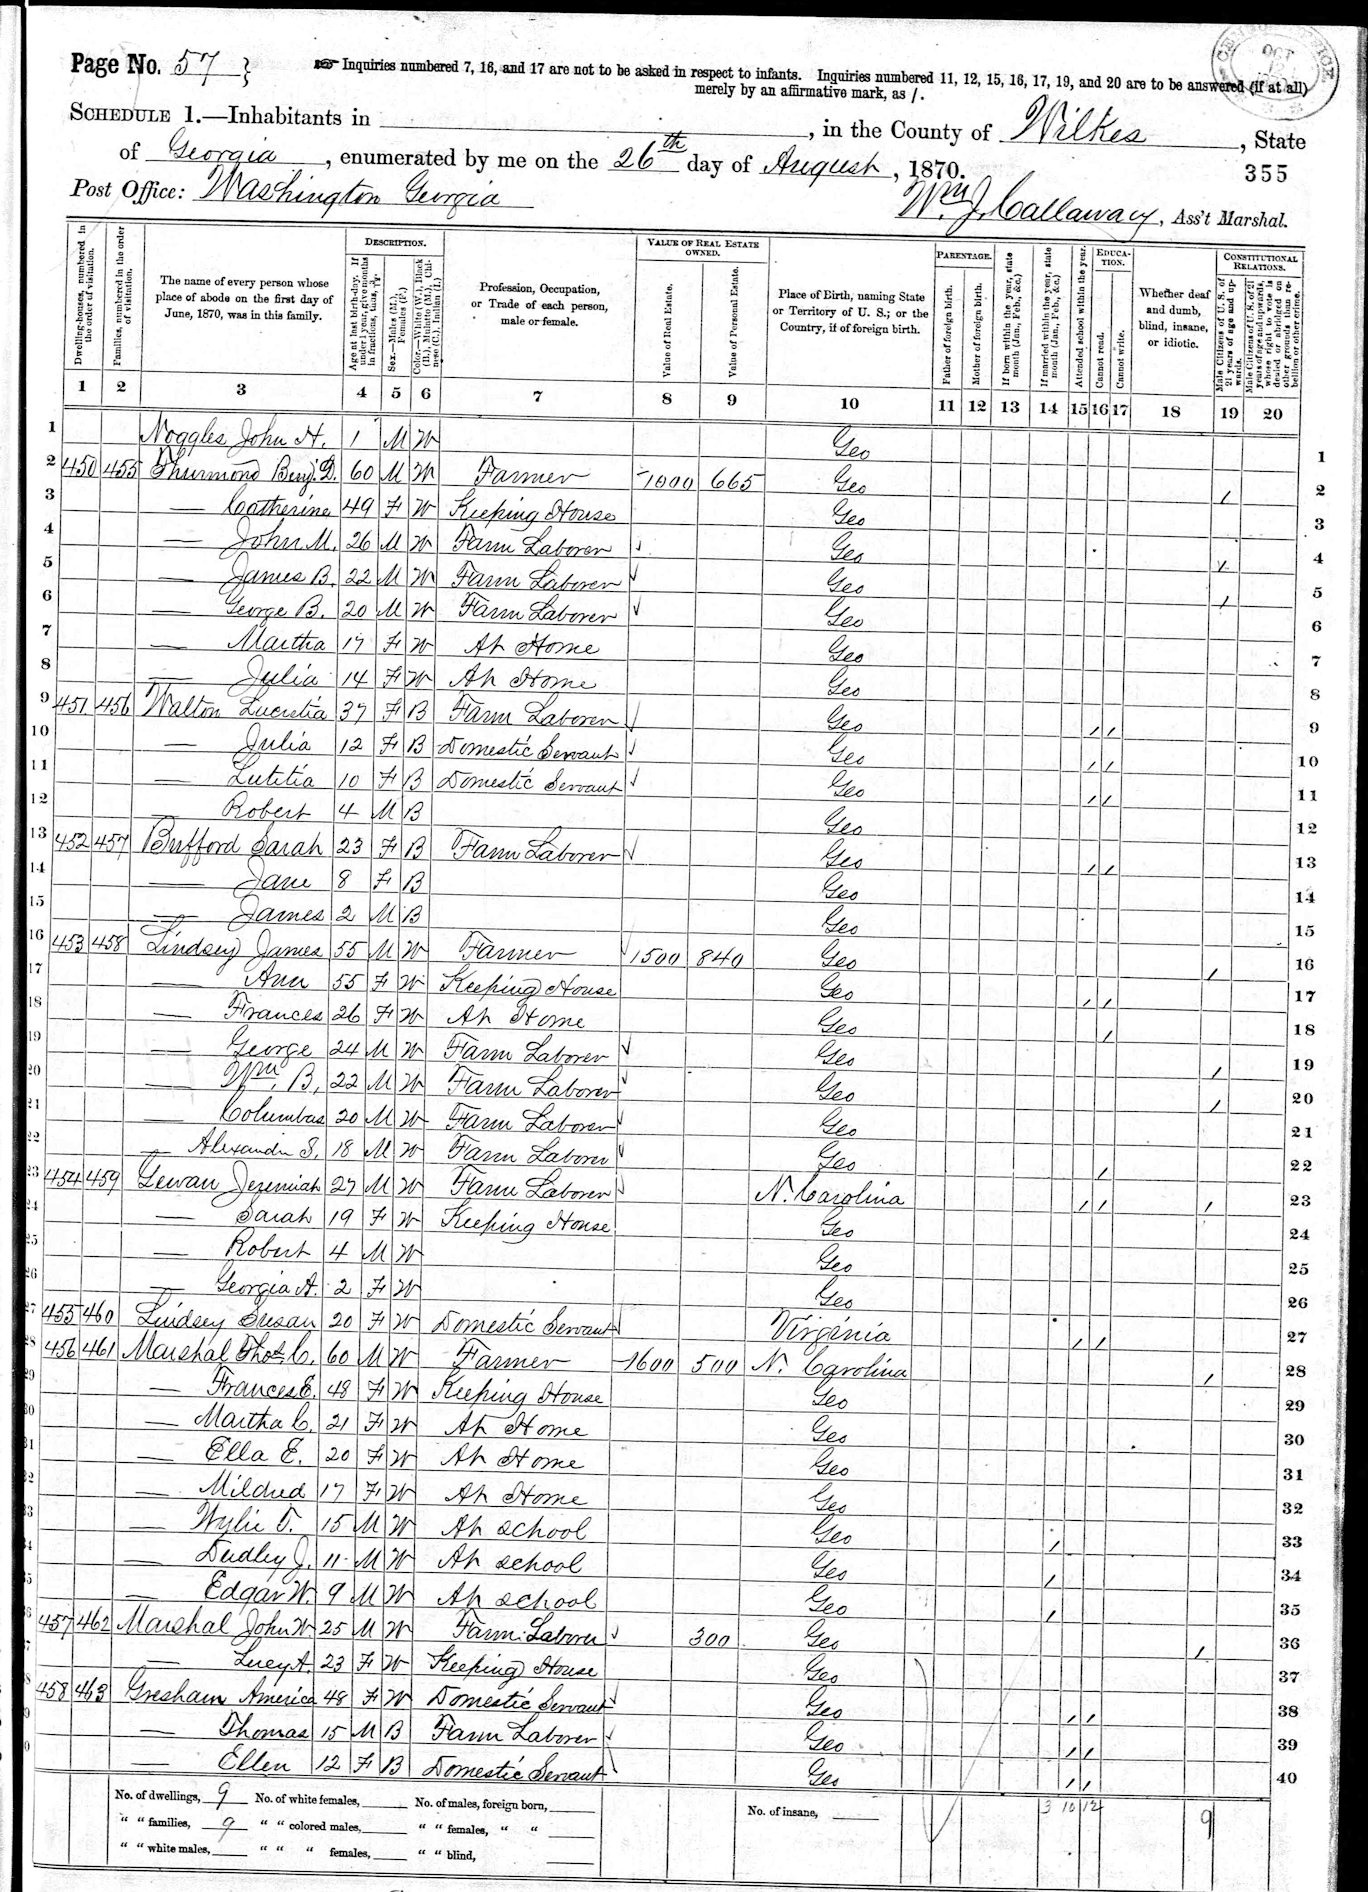 Page No. 57
☞ Inquiries numbered 7, 16, and 17 are not to be asked in respect to infants. Inquiries numbered 11, 12, 15, 16, 17, 19, and 20 are to be answered (if at all)
merely by an affirmative mark, as /.
SCHEDULE 1.—Inhabitants in , in the County of Wilkes, State
of Georgia, enumerated by me on the 26th day of August, 1870.
355
Post Office: Washington Georgia
Wm J. Callaway, Ass't Marshal.
Dwelling-houses, numbered in the order of visitation.
Families, numbered in the order of visitation.
The name of every person whose place of abode on the first day of June, 1870, was in this family.
DESCRIPTION.
Age at last birth-day. If under 1 year, give months in fractions, thus, 3/12
Sex.—Males (M.), Females (F.)
Color.—White (W.), Black (B.), Mulatto (M.), Chinese (C.), Indian (I.)
Profession, Occupation, or Trade of each person, male or female.
VALUE OF REAL ESTATE OWNED.
Value of Real Estate.
Value of Personal Estate.
Place of Birth, naming State or Territory of U. S.; or the Country, if of foreign birth.
PARENTAGE.
Father of foreign birth.
Mother of foreign birth.
If born within the year, state month (Jan., Feb., &c.)
If married within the year, state month (Jan., Feb., &c.)
Attended school within the year.
EDUCATION.
Cannot read.
Cannot write.
Whether deaf and dumb, blind, insane, or idiotic.
CONSTITUTIONAL RELATIONS.
Male Citizens of U. S. of 21 years of age and upwards.
Male Citizens of U. S. of 21 years of age and upwards, whose right to vote is denied or abridged on other grounds than rebellion or other crime.
1 2 3 4 5 6 7 8 9 10 11 12 13 14 15 16 17 18 19 20
1 Noggles John H. 1 M W Geo 1
2 450 455 Thurmond Benj. D. 60 M W Farmer 1000 665 Geo / 2
3 — Catherine 49 F W Keeping House Geo 3
4 — John M. 26 M W Farm Laborer Geo / 4
5 — James B. 22 M W Farm Laborer Geo / 5
6 — George B. 20 M W Farm Laborer Geo 6
7 — Martha 17 F W At Home Geo 7
8 — Julia 14 F W At Home Geo 8
9 451 456 Walton Lucretia 37 F B Farm Laborer Geo / / 9
10 — Julia 12 F B Domestic Servant Geo / / 10
11 — Lutitia 10 F B Domestic Servant Geo / / 11
12 — Robert 4 M B Geo 12
13 452 457 Bufford Sarah 23 F B Farm Laborer Geo / / 13
14 — Jane 8 F B Geo 14
15 — James 2 M B Geo 15
16 453 458 Lindsey James 55 M W Farmer 1500 840 Geo / 16
17 — Ann 55 F W Keeping House Geo / / 17
18 — Frances 26 F W At Home Geo / 18
19 — George 24 M W Farm Laborer Geo / 19
20 — Wm. B. 22 M W Farm Laborer Geo / 20
21 — Columbus 20 M W Farm Laborer Geo 21
22 — Alexander S. 18 M W Farm Laborer Geo / 22
23 454 459 Gewan Jeremiah 27 M W Farm Laborer N. Carolina / / / 23
24 — Sarah 19 F W Keeping House Geo 24
25 — Robert 4 M W Geo 25
26 — Georgia A. 2 F W Geo 26
27 455 460 Lindsey Susan 20 F W Domestic Servant Virginia / / 27
28 456 461 Marshal Thos. C. 60 M W Farmer 1600 500 N. Carolina / 28
29 — Frances E. 48 F W Keeping House Geo 29
30 — Martha C. 21 F W At Home Geo 30
31 — Ella E. 20 F W At Home Geo 31
32 — Mildred 17 F W At Home Geo 32
33 — Wylie T. 15 M W At school Geo / 33
34 — Dudley J. 11 M W At school Geo / 34
35 — Edgar W. 9 M W At school Geo / 35
36 457 462 Marshal John W. 25 M W Farm Laborer 300 Geo / 36
37 — Lucy A. 23 F W Keeping House Geo 37
38 458 463 Gresham America 48 F W Domestic Servant Geo / / 38
39 — Thomas 15 M B Farm Laborer Geo / / 39
40 — Ellen 12 F B Domestic Servant Geo / / 40
No. of dwellings, 9 No. of white females, No. of males, foreign born, No. of insane, 3 10 12 9
" " families, 9 " " colored males, " " females, " "
" " white males, " " " females, " " blind,